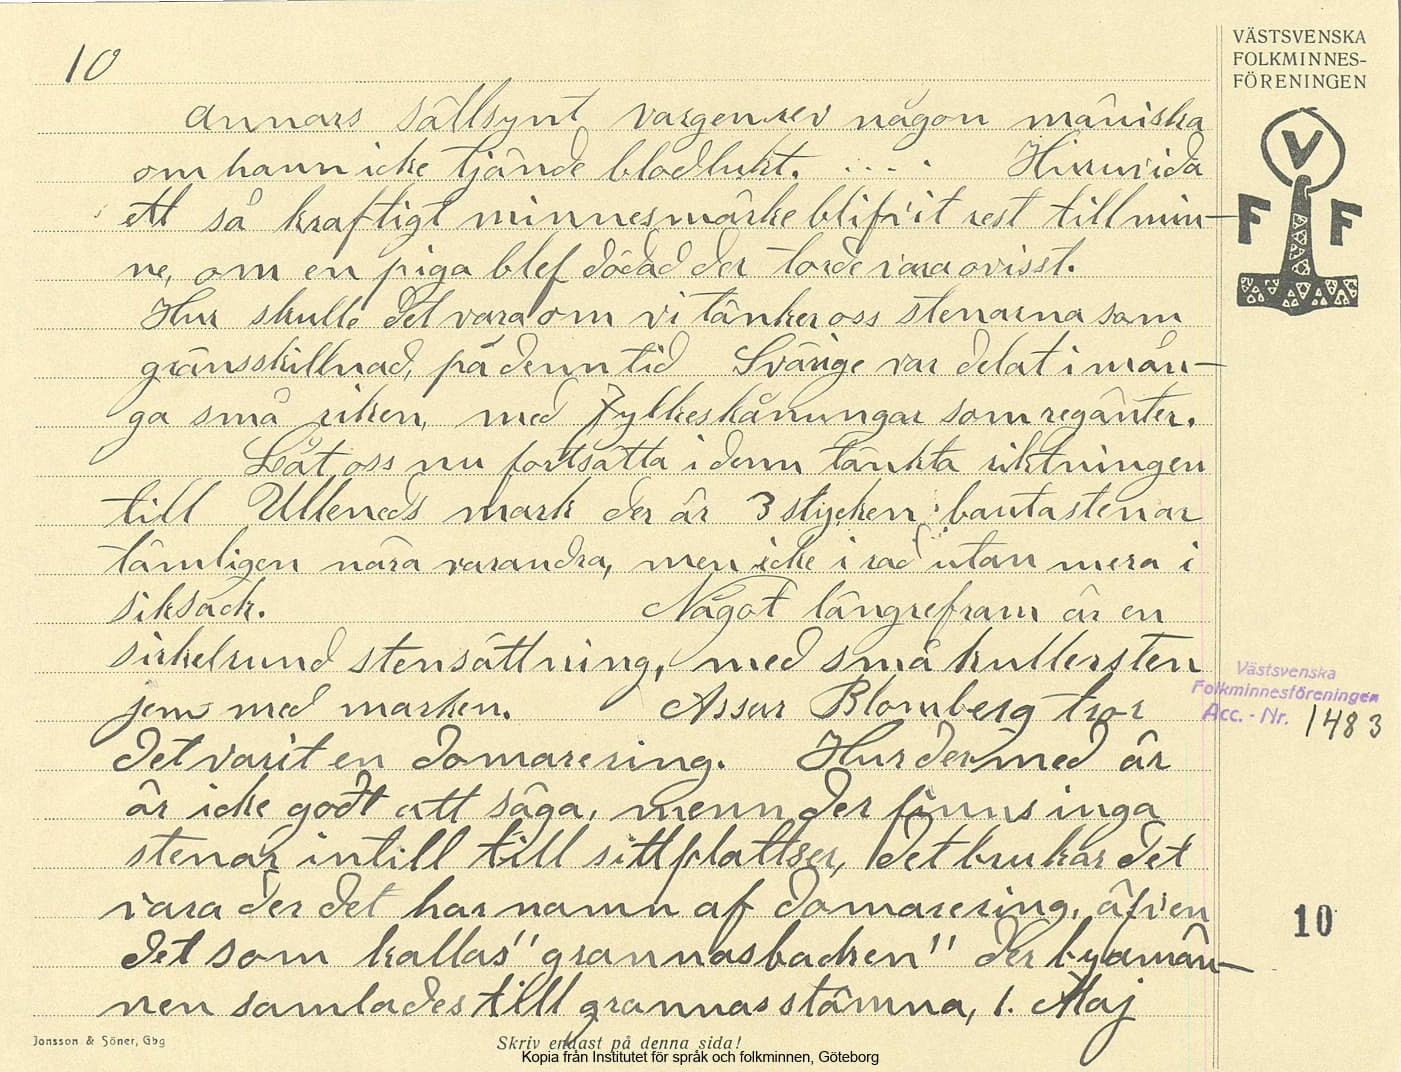 10
VÄSTSVENSKA
FOLKMINNES-
FÖRENINGEN
V
F F
annars sällsynt vargen rev någon mäniska
om hann icke tjände blodlukt. .... Huruvida
ett så kraftigt minnesmärke blifvit rest till min-
ne, om en piga blef dödad der torde vara ovisst.
Hur skulle det vara om vi tänker oss stenarna som
gränsskillnad, på denn tid Svärige var delat i mån-
ga små riken, med Fylkeskånungar som regänter.
Låt oss nu fortsätta i denn tänkta riktningen
till Ulleneds mark der är 3 stycken bautastenar
tämligen nära varandra, men icke i rad utan mera i
siksack. Något längre fram är en
sirkelrund stensättning, med små kullersten
jems med marken. Assar Blomberg tror
det varit en domarering. Hur dermed är
är icke godt att säga, menn der finns inga
stenar intill till sittplattser, det brukar det
vara der det har namn af domarering, äfven
det som kallas "grannasbacken" der byamän-
nen samlades till grannasstämna, 1. Maj
Västsvenska
Folkminnesföreningen
Acc. - Nr. 1483
10
Jonsson & Söner, Gbg
Skriv endast på denna sida!
Kopia från Institutet för språk och folkminnen, Göteborg